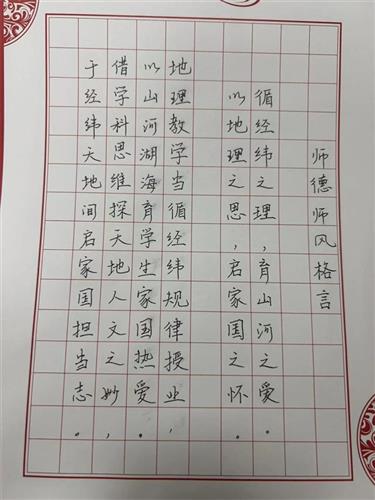 师德师风格言
循经纬之理，育山河之爱。
以地理之思，启家国之怀。
地理教学当循经纬规律授业，
以山河湖海育学生家国热爱。
借学科思维探天地人文之妙，
于经纬天地间启家国担当志。